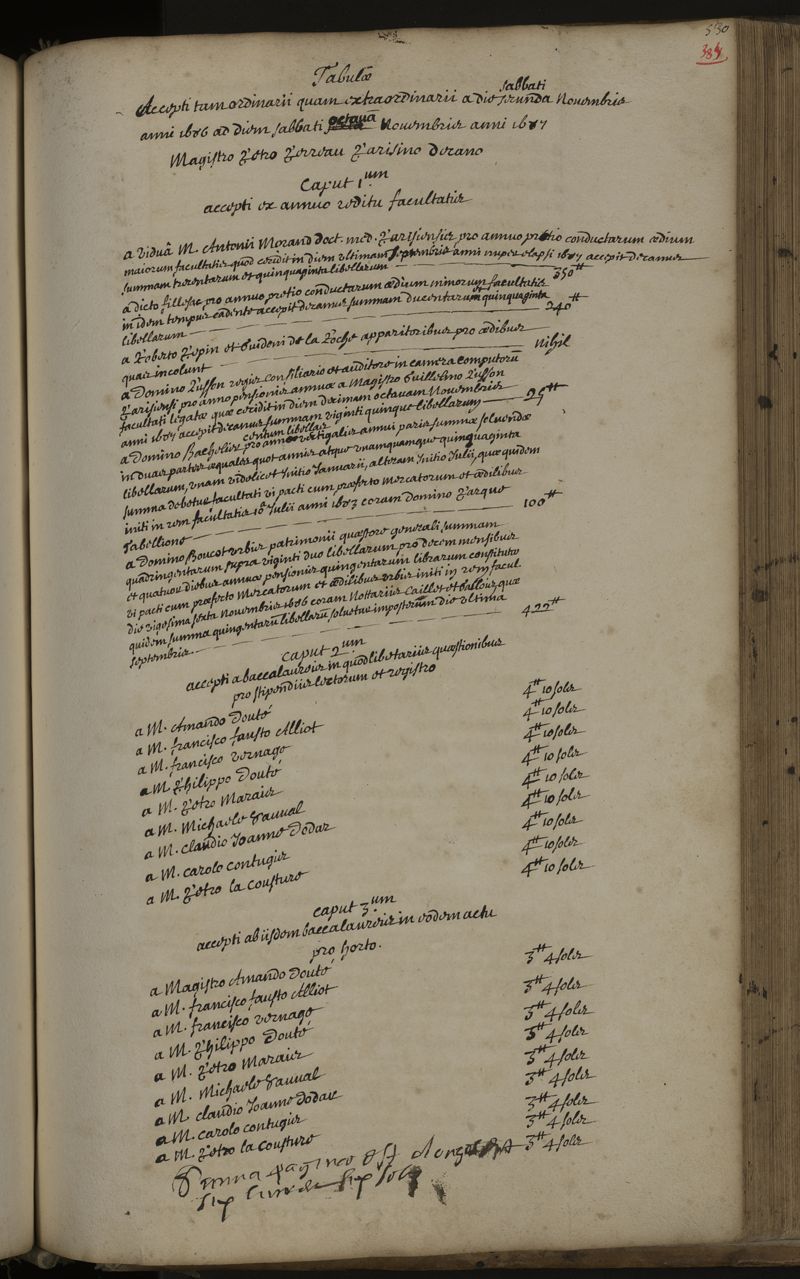 530
384
Tabulæ
sabbati
Accepti tam ordinarii quam extraordinarii a die secunda Novembris
anni 1686 ad diem sabbati octavâ Novembris anni 1687
Magistro Petro Perreau Parisino decano
Caput 1um
accepti ex annuo reditu facultatis
a viduâ M. Antonii Morand doct. med. Parisiensis pro annuo pretio conductarum ædium
maiorum facultatis quod cecidit in diem ultimam septembris anni nuper elapsi 1687 accepit decanus
summam trecentarum et quinquaginta libellarum 350tt
a dicto fillese pro annuo pretio conductarum ædium minorum facultatis
in idem tempus cadente accepit decanus summam ducentarum et quinquaginta
libellarum 240tt
a Roberto Pepin et Guideni de la Roche apparitoribus pro ædibus
quas incolunt Nihil
a Domino Lusson regis consiliario et auditore in camera computorū
Parisiensi pro anno pensionis annuæ a Magistro Guillelmo Lusson
facultati legatæ quæ cecidit in diem decimam octavam Novembris
anni 1687 accepit decanus summam viginti quinque libellarum 25tt
centum libellas
a Domino Bachelier pro annuo vectigalis annui paris summæ solvendæ
in duas partes æquales quot annis atque unamquamque quinquaginta
libellarum, unam videlicet initio Januarii, alteram initio Julii, quæ quidem
summa debetur facultati vi pacti cum præfecto mercatorum et ædilibus
initi in rem facultatis 18 Julii anni 1683 coram Domino Parque
Tabellione 100tt
a Domino Boucot urbis patrimonii quæstore generali summam
quadringentarum supra viginti duo libellarum pro decem mensibus
et quatuor diebus annuæ pensionis quingentarum librarum constitutæ
vi pacti cum præfecto Mercatorum et ædilibus urbis initi in rem facul.
die vigesima sexta Novembris 1686 coram Nottariis Caillet et Gallois, quæ
quidem summa quingentarū libellarū solvetur impostorum die ultima
septembris. 422tt
Caput 2um
accepti a baccalaureis in quodlibetariis quæstionibus
pro stipendiis lectorum et registro
a M. Amando Douté 4tt 10 solis
a M. francisco fausto Alliot 4tt 10 solis
a M. francisco vernage 4tt 10 solis
a M. Philippo Douté 4tt 10 solis
a M. Petro Marais 4tt 10 solis
a M. Michaele Sauval 4tt 10 solis
a M. claudio Joanne Dodar 4tt 10 solis
a M. carolo contugis 4tt 10 solis
a M. Petro la cousture 4tt 10 solis
caput 3um
accepti ab iisdem baccalaureis in eodem actu
pro horto.
a Magistro Amando Douté 3tt 4 solis
a M. francisco fausto Alliot 3tt 4 solis
a M. francisco vernage 3tt 4 solis
a M. Philippo Douté 3tt 4 solis
a M. Petro Marais 3tt 4 solis
a M. Michaele Sauval 3tt 4 solis
a M. claudio Joanne dodar 3tt 4 solis
a M. carolo contugis 3tt 4 solis
a M. Petro la cousture 3tt 4 solis
Summa paginæ est